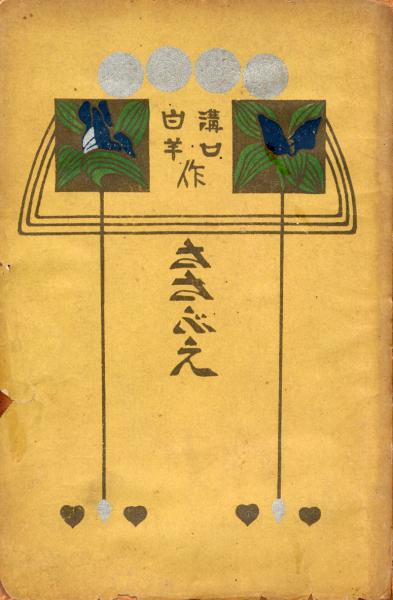 溝口
白羊
作
ささぶえ